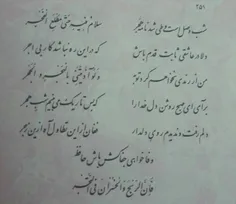 ۲۵۱
شب وصل است و طی شد نامه هجر سلام فیه حتی مطلع الفجر
دلا در عاشقی ثابت قدم باش که در این ره نباشد کار بی اجر
من از رندی نخواهم کرد توبه ولو آذیتنی بالهجر و الحجر
برآی ای صبح روشن دل خدا را که بس تاریک می بینم شب هجر
دلم رفت و ندیدم روی دلدار فغان از این تطاول آه از این زجر
وفا خواهی جفاکش باش حافظ
فان الربح و الخسران فی التجر